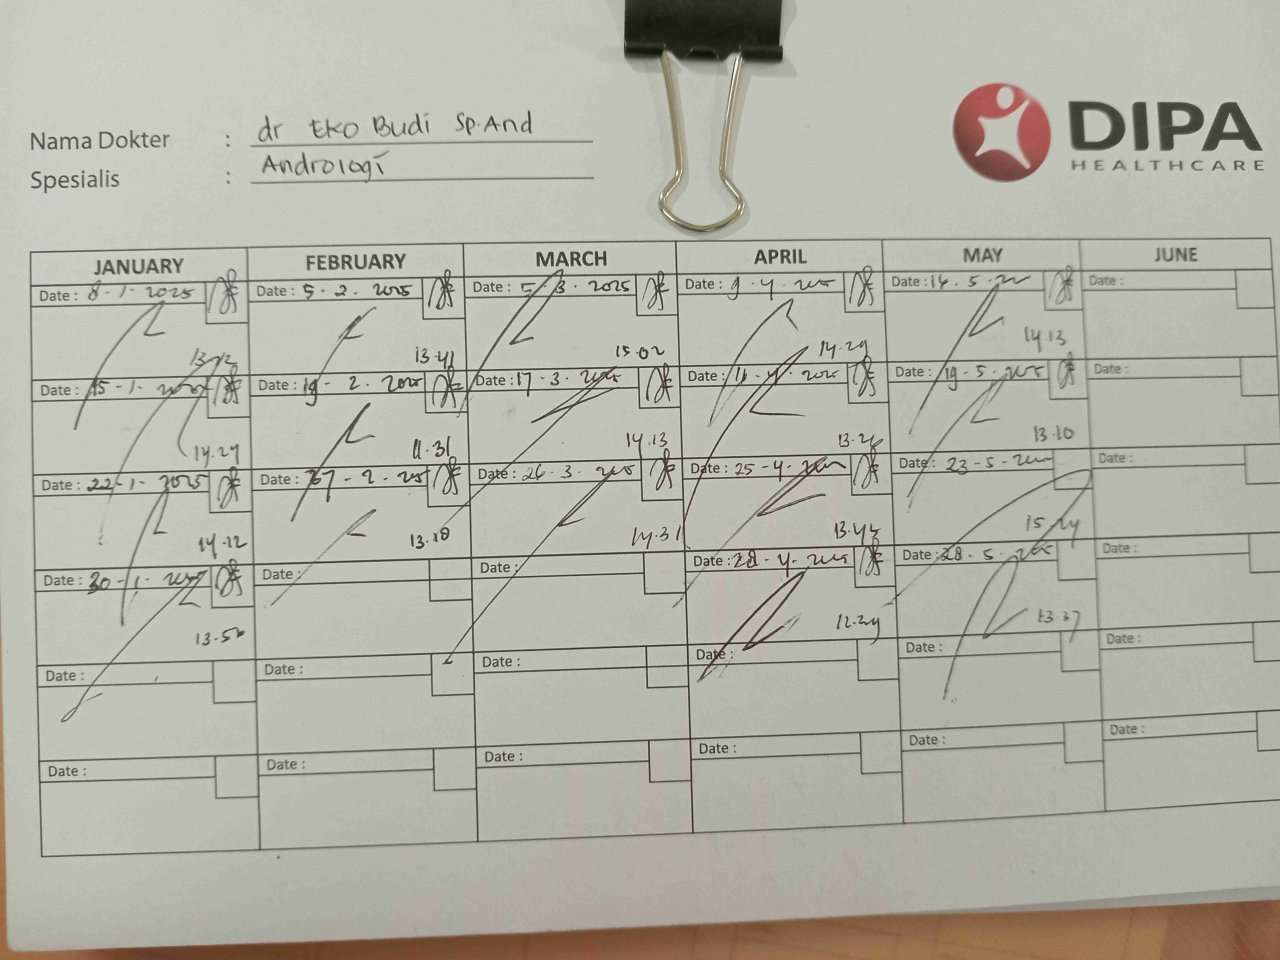 DIPA
HEALTHCARE
Nama Dokter : dr Eko Budi Sp.And
Spesialis : Andrologi
JANUARY FEBRUARY MARCH APRIL MAY JUNE
Date : 8-1-2025 Date : 5.2.2025 Date : 5-3.2025 Date : 9-4-2025 Date : 14.5.2025 Date :
13.12 13.41 15.02 14.29 14.13
Date : 15-1.2025 Date : 19-2.2025 Date : 17-3.2025 Date : 2025 Date : 19-5.2025 Date :
14.27 11.31 14.13 13.26 13.10
Date : 22-1.2025 Date : 27-2.2025 Date : 26-3.2025 Date : 25-4-2025 Date : 23-5-2025 Date :
14.12 13.18 14.31 13.43 15.24
Date : 30-1.2025 Date : Date : Date : 28-4-2025 Date : 28.5.2025 Date :
13.56 12.29 13.37
Date : Date : Date : Date : Date : Date :
Date : Date : Date : Date : Date : Date :